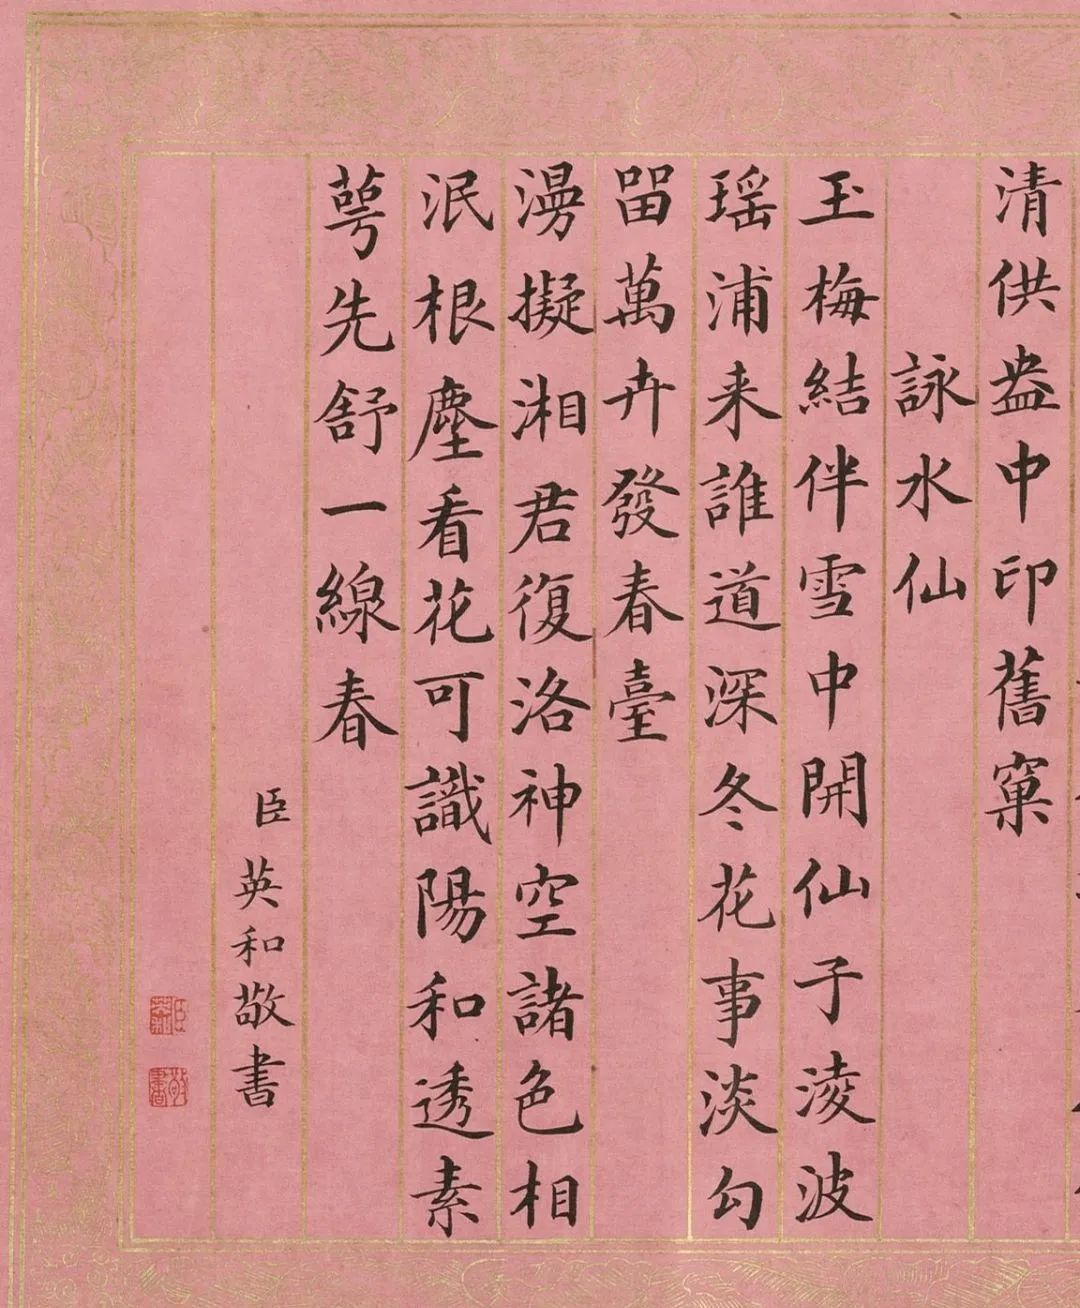 清供盎中印舊窠
詠水仙
玉梅結伴雪中開仙子淩波
瑶浦来誰道深冬花事淡勾
留萬卉發春臺
漫擬湘君復洛神空諸色相
泯根塵看花可識陽和透素
萼先舒一線春
臣英和敬書
臣英和
敬書